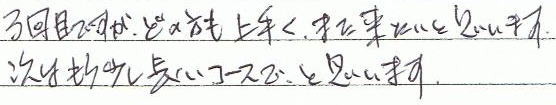 3回目ですが、どの方も上手く、また来たいと思います。
次はもう少し長いコースで、と思います。